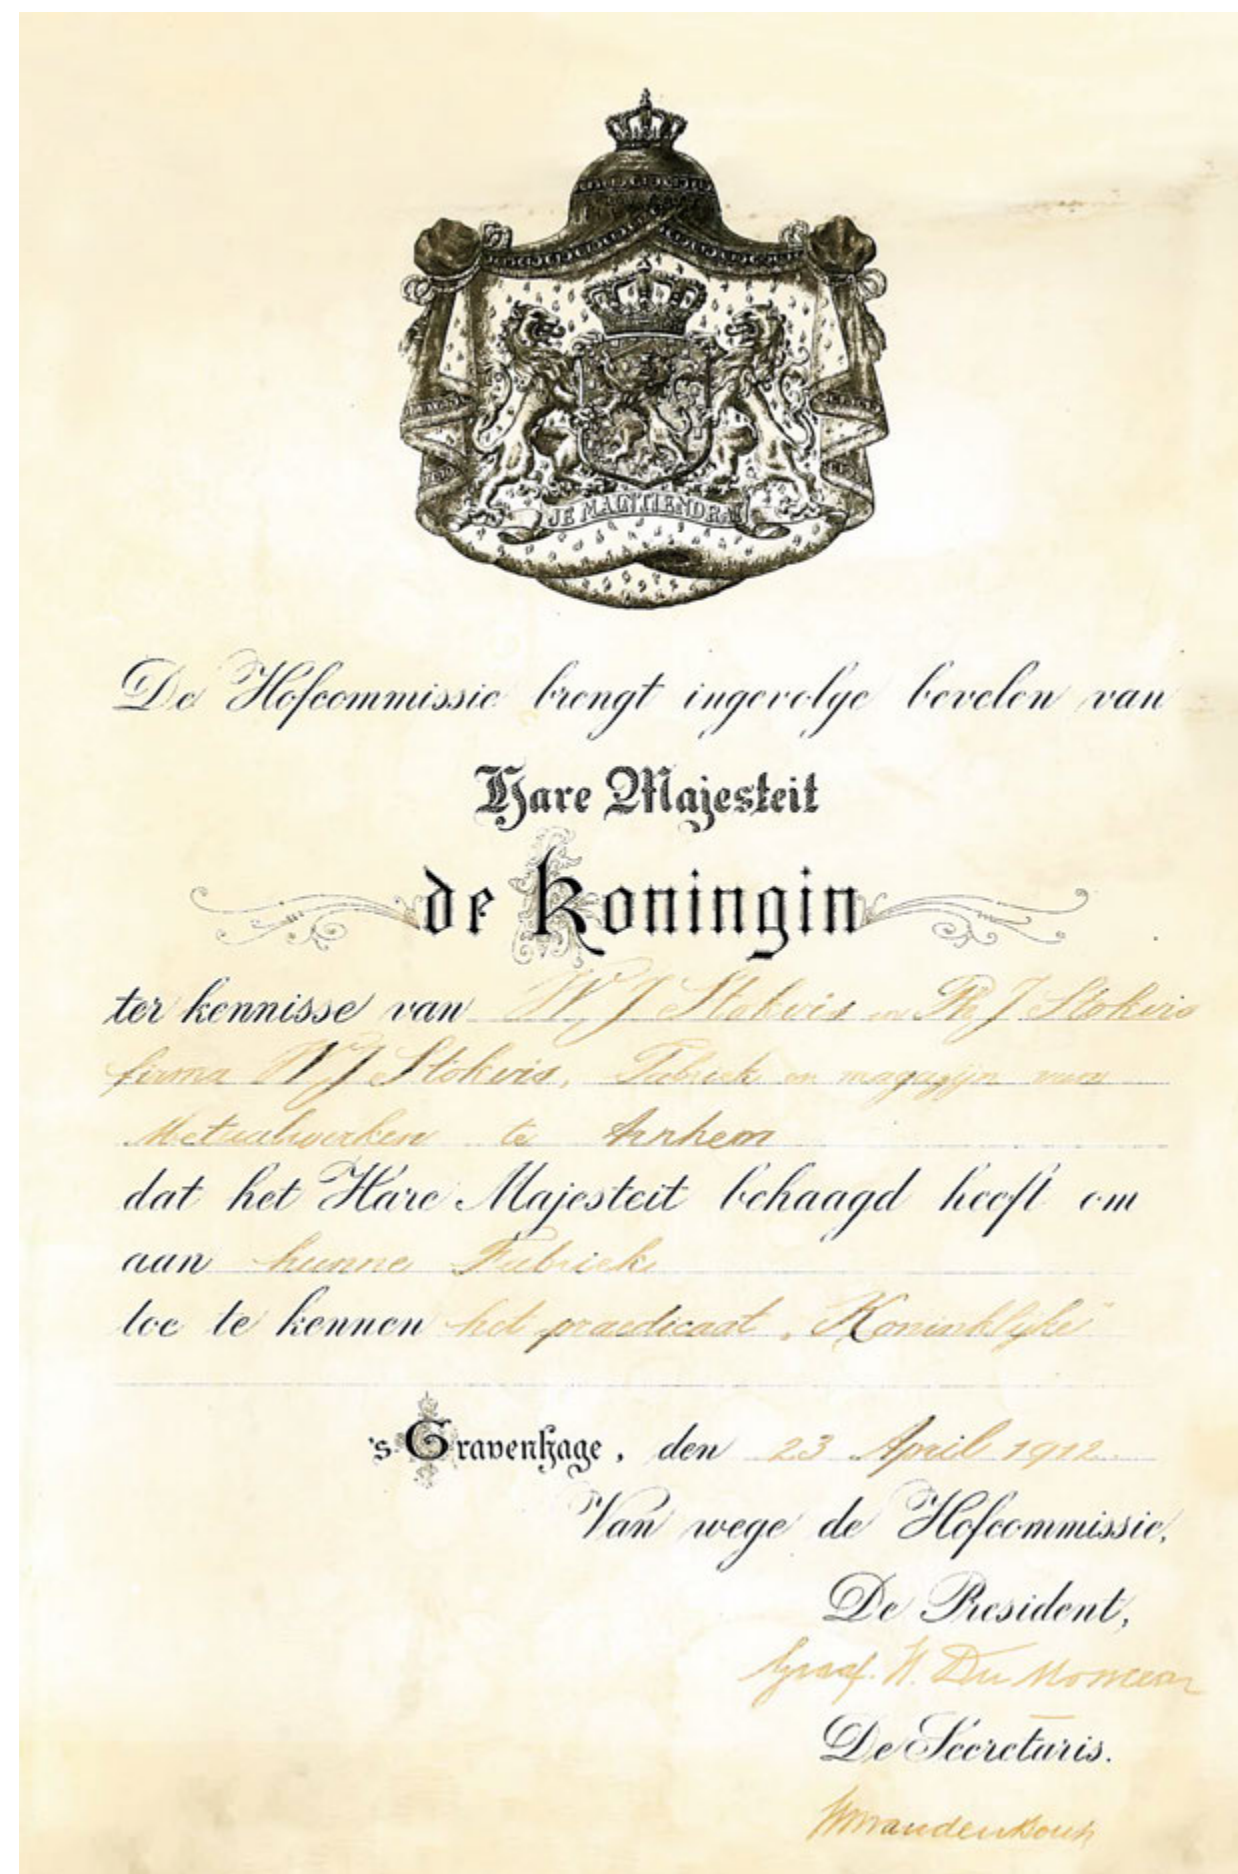 JE MAINTIENDRAI
De Hofcommissie brengt ingevolge bevelen van
Hare Majesteit
de Koningin
ter kennisse van W J Stokvis en Ph J Stokvis
firma W J Stokvis, Fabriek en magazijn van
Metaalwerken te Arnhem
dat het Hare Majesteit behaagd heeft om
aan hunne Fabriek
toe te kennen het praedicaat „Koninklijke”
's Gravenhage, den 23 April 1912.
Van wege de Hofcommissie,
De President,
Graaf. H. Du Monceau
De Secretaris.